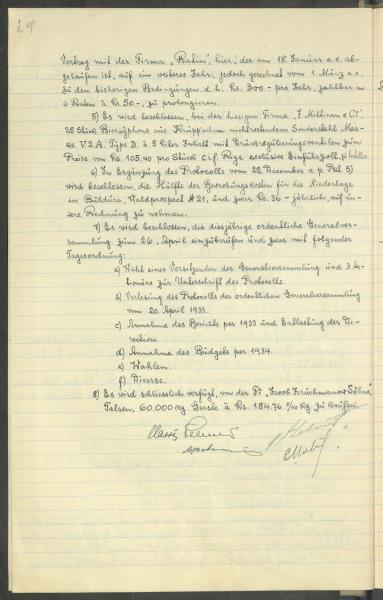 Vertrag mit der Firma „Ratin", hier, der am 18. Januar a.c. ab-
gelaufen ist, auf ein weiteres Jahr, jedoch gerechnet vom 1. März a.c.
zu den bisherigen Bedingungen d.h. Rs. 300.- pro Jahr, zahlbar in
6 Raten à Rs 50.-, zu prolongieren.
5) Es wird beschlossen, bei der hiesigen Firma „J. Mitburn & Co"
25 Stück Biersyphons aus Krupp'schem nichtrostendem Sonderstahl Mar-
ke V.2.A. Type D. à 5 Liter Inhalt mit Druckregulierungsventilen zum
Preise von Rs. 105.40 pro Stück c.i.f. Riga exclusive Einfuhrzoll, zu kaufen.
6) In Ergänzung des Protocolls vom 22. December a.p. Pkt. 5)
wird beschlossen, die Hälfte der Bewachungskosten für die Niederlage
in Bulduri, Waldprospect # 21, und zwar Rs. 36.- jährlich, auf un-
sere Rechnung zu nehmen.
7) Es wird beschlossen, die diesjährige ordentliche Generalver-
sammlung zum 26. April einzuberufen und zwar mit folgender
Tagesordnung:
a) Wahl eines Vorsitzenden der Generalversammlung und 3 Ac-
tionäre zur Unterschrift des Protocolls.
b) Verlesung des Protocolls der ordentlichen Generalversammlung
vom 20. April 1933.
c) Annahme des Berichts per 1933 und Entlastung der Di-
rection.
d) Annahme des Budgets per 1934.
e) Wahlen.
f) Diverse.
8) Es wird schliesslich verfügt, von der Fa „Jacob Jerichmanow Söhne"
Talsen, 60.000 kg. Gerste à Rs. 184.76 %o kg. zu kaufen.